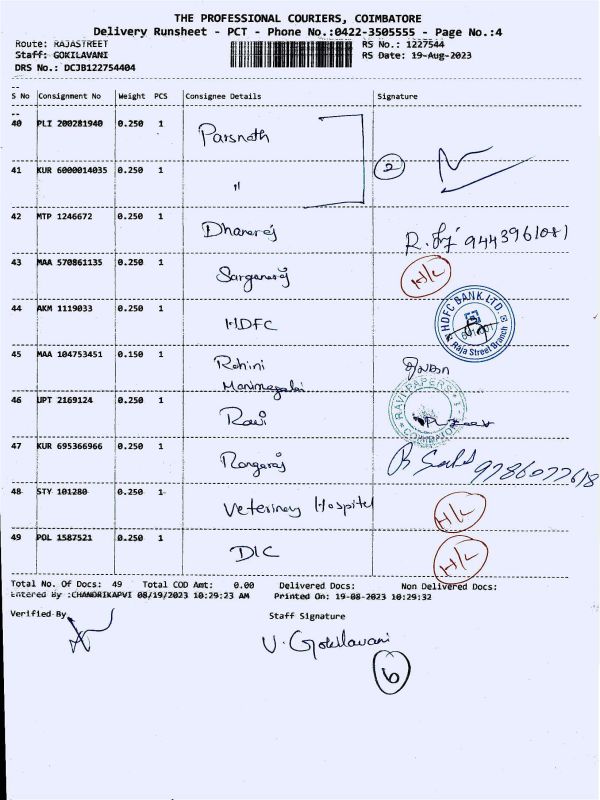 THE PROFESSIONAL COURIERS, COIMBATORE
Delivery Runsheet - PCT - Phone No.:0422-3505555 - Page No.:4
Route: RAJASTREET RS No.: 1227544
Staff: GOKILAVANI RS Date: 19-Aug-2023
DRS No.: DCJB122754404
S No Consignment No Weight PCS Consignee Details Signature
40 PLI 200281940 0.250 1 Parsnath
41 KUR 6000014035 0.250 1 " 2
42 MTP 1246672 0.250 1 Dhanaraj R. 9443961081
43 MAA 570861135 0.250 1 H/L
44 AKM 1119033 0.250 1 HDFC HDFC BANK LTD. Raja Street Branch
45 MAA 104753451 0.150 1 Rohini
Manimegalai
46 UPT 2169124 0.250 1 Ravi RAVI PAPERS COIMBATORE
47 KUR 695366966 0.250 1 Rangaraj 9786077618
48 STY 101280 0.250 1 Veterinary Hospital H/L
49 POL 1587521 0.250 1 DIC H/L
Total No. Of Docs: 49 Total COD Amt: 0.00 Delivered Docs: Non Delivered Docs:
Entered By :CHANDRIKAPVI 08/19/2023 10:29:23 AM Printed On: 19-08-2023 10:29:32
Verified By Staff Signature
V. Gokilavani
6